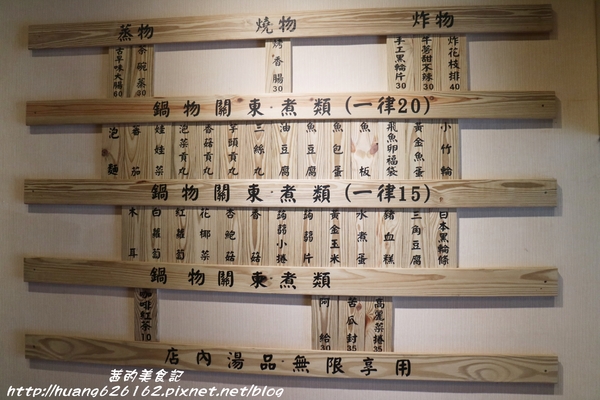 蒸物 燒物 炸物
古早味大腸60
茶碗蒸
烤香腸30
手工黑輪片30
牛蒡甜不辣30
炸花枝排40
鍋物關東煮類(一律20)
泡麵
蕃茄
娃娃菜
泡菜貢丸
香菇貢丸
芋頭貢丸
三絲丸
油豆腐
魚豆腐
魚包蛋
魚板
飛魚卵福袋
黃金魚蛋
小竹輪
鍋物關東煮類(一律15)
木耳
白蘿蔔
紅蘿蔔
花椰菜
杏鮑菇
香菇
蒟蒻小捲
蒟蒻片
黃金玉米
水煮蛋
豬血糕
三角豆腐
日本黑輪條
鍋物關東煮類
咖啡紅茶10
阿給30
苦瓜封35
高麗菜捲35
店內湯品無限享用
茜的美食記
http://huang626162.pixnet.net/blog